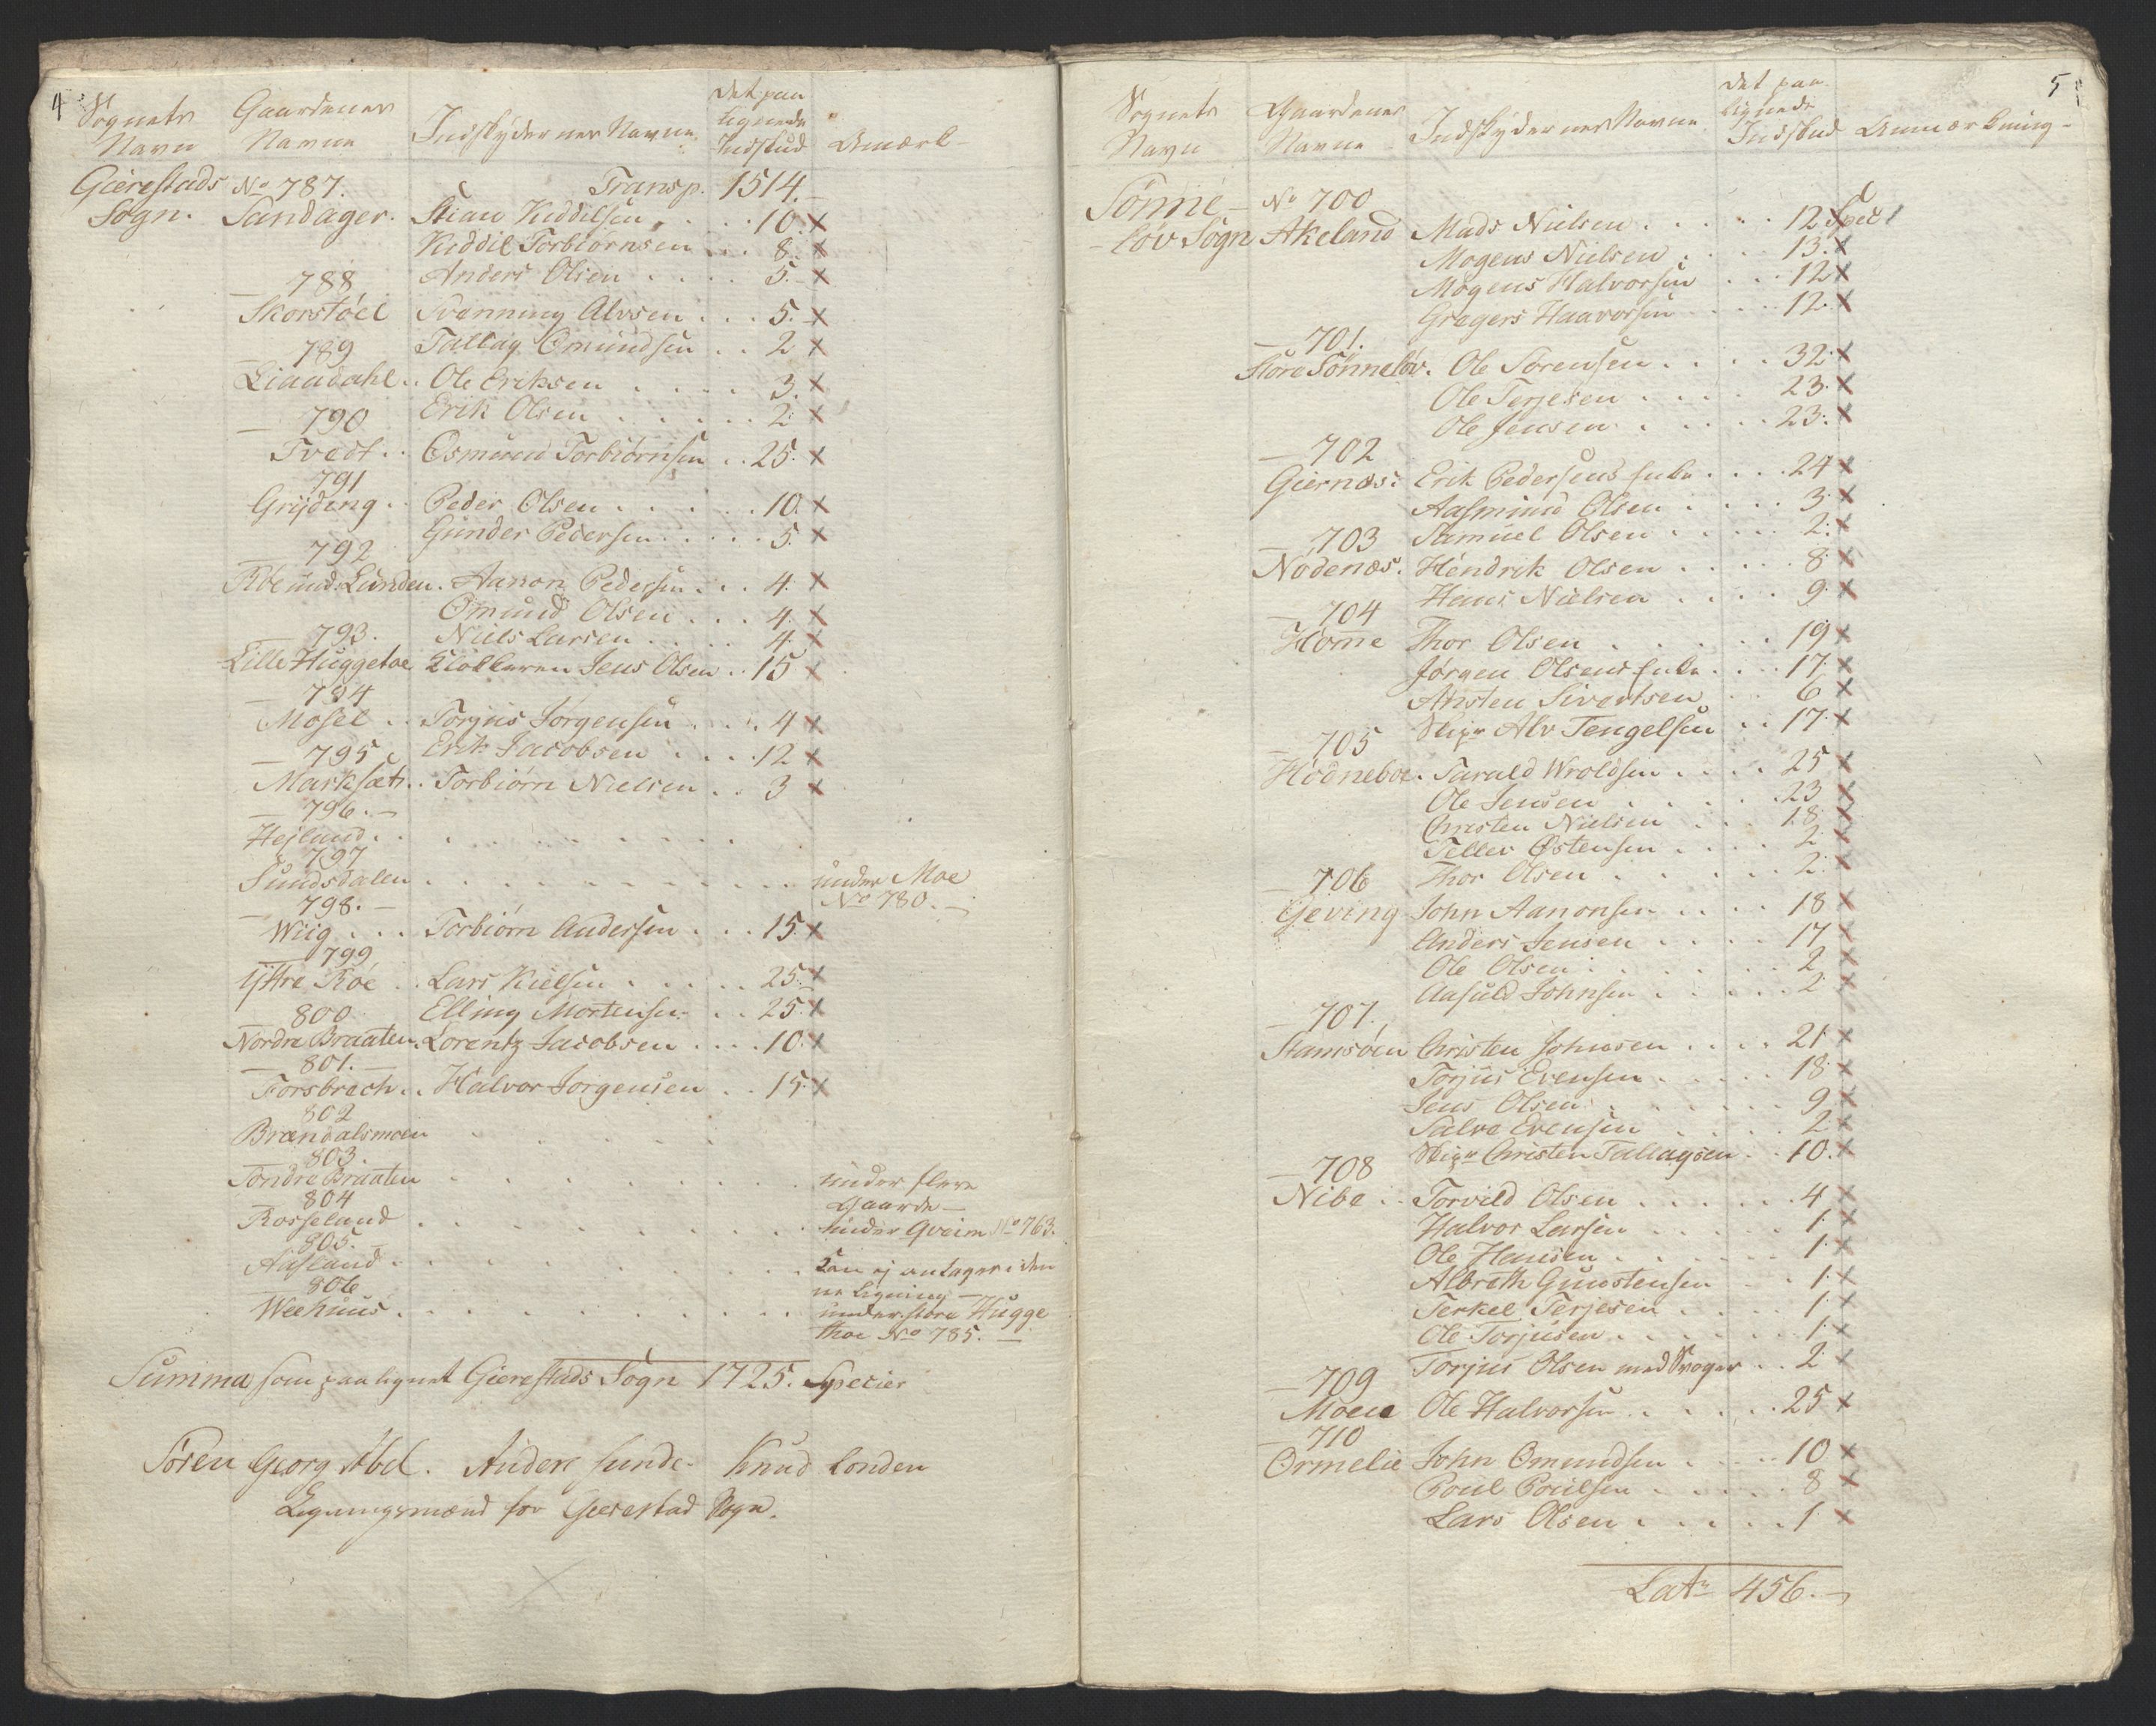 4
Sognets Navn | Gaardenes Navne | Indskydernes Navne | Det paa lignede Indskud | Anmærk-
Gierestads Sogn. | No 787. | Transp. | 1514.
Sandager. | Stian Kiddilsen | 10. x
Kiddil Torbiørnsen | 8. x
Anders Olsen | 5. x
788
Skorstøel | Svenning Alvsen | 5. x
789 | Tallag Omundsen | 2 x
Liaadahl | Ole Eriksen | 3. x
790 | Erik Olsen | 2 x
Tvedt | Osmund Torbiørnsen | 25. x
791
Gryding | Peder Olsen | 10. x
Gunder Pedersen | 5. x
792
Roe und. Lunden. | Aanon Pedersen | 4. x
Omund Olsen | 4. x
793. | Niels Larsen | 4. x
Lille Huggetoe | Klokkeren Jens Olsen | 15 x
794
Mosel | Torjus Jørgensen | 4 x
795 | Erik Jacobsen | 12 x
Marksæt | Torbiørn Nielsen | 3 x
796.
Hejland
797
Sundsdalen | under Moe No 780.
798.
Wiig | Torbiørn Andersen | 15. x
799
Yttre Roe | Lars Kielsen | 25. x
800 | Elling Mortensen | 25. x
Nordre Braaten. | Lorentz Jacobsen | 10. x
801.
Forsbrech | Halvor Jorgensen | 15. x
802
Brændalsmoen
803.
Søndre Braaten | under flere Gaarde
804
Rosseland | under Qveim No 763.
805.
Aasland | Kan ej antages i denne Ligning
806
Weehuus | under store Huggethoe No 785.
Summa som paalignet Gierestads Sogn 1725. Species
Søren Georg Abel. Anders Sunde Knud Londen
Ligningsmænd for Gierestad Sogn.
5
Sognets Navn | Gaardenes Navne | Indskydernes Navne | Det paalignede Indskud | Anmærkning
Sønneløv Sogn | No 700
Akeland | Mads Nielsen | 12 Spec
Mogens Nielsen | 13. x
Mogens Halvorsen | 12 x
Gregers Haavorsen | 12. x
701.
Store Sønneløv. | Ole Sørensen | 32. x
Ole Terjesen | 23. x
Ole Jensen | 23. x
702
Giernæs. | Erik Pedersens Enke | 24 x
Aasmund Olsen | 3. x
703 | Samuel Olsen | 2. x
Nodenæs. | Hendrik Olsen | 8. x
Hans Nielsen | 9. x
704
Home | Thor Olsen | 19 x
Jørgen Olsens Enke | 17. x
Ansten Sivertsen | 6 x
Alv Tengelsen | 17. x
705
Hødneboe. | Tarald Wroldsen | 25 x
Ole Jensen | 23 x
Christen Nielsen | 18 x
Tellev Østensen | 2 x
706 | Thor Olsen | 2. x
Geving | John Aanonsen | 18 x
Anders Jensen | 17 x
Ole Olsen | 2 x
Aasuld Johnsen | 2 x
707.
Stamsøen | Christen Johnsen | 21 x
Torjus Evensen | 18. x
Jens Olsen | 9 x
Salve Evensen | 2 x
Christen Tallagsen | 10. x
708
Nibe | Torvild Olsen | 4 x
Halvor Larsen | 1. x
Ole Hansen | 1. x
Albreth Gunstensen | 1. x
Terkel Terjesen | 1. x
Ole Torjusen | 1. x
Torjus Olsen med Svoger | 2. x
709
Moen | Ole Halvorsen | 25 x
710
Ormelie | John Omundsen | 10 x
Poul Poulsen | 8 x
Lars Olsen | 1 x
Lat 456.